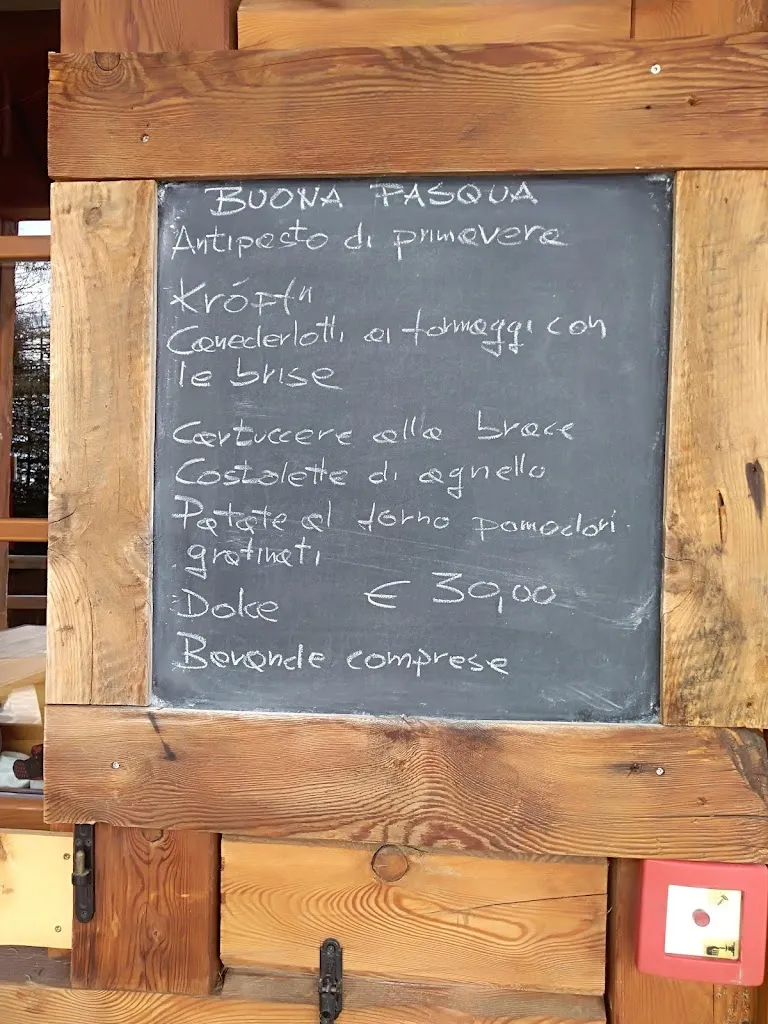 BUONA PASQUA
Antipasto di primavera
Krópfn
Canederlotti ai formaggi con
le brise
Cartuccere alla brace
Costolette di agnello
Patate al forno pomodori
gratinati
Dolce € 30,00
Bevande comprese